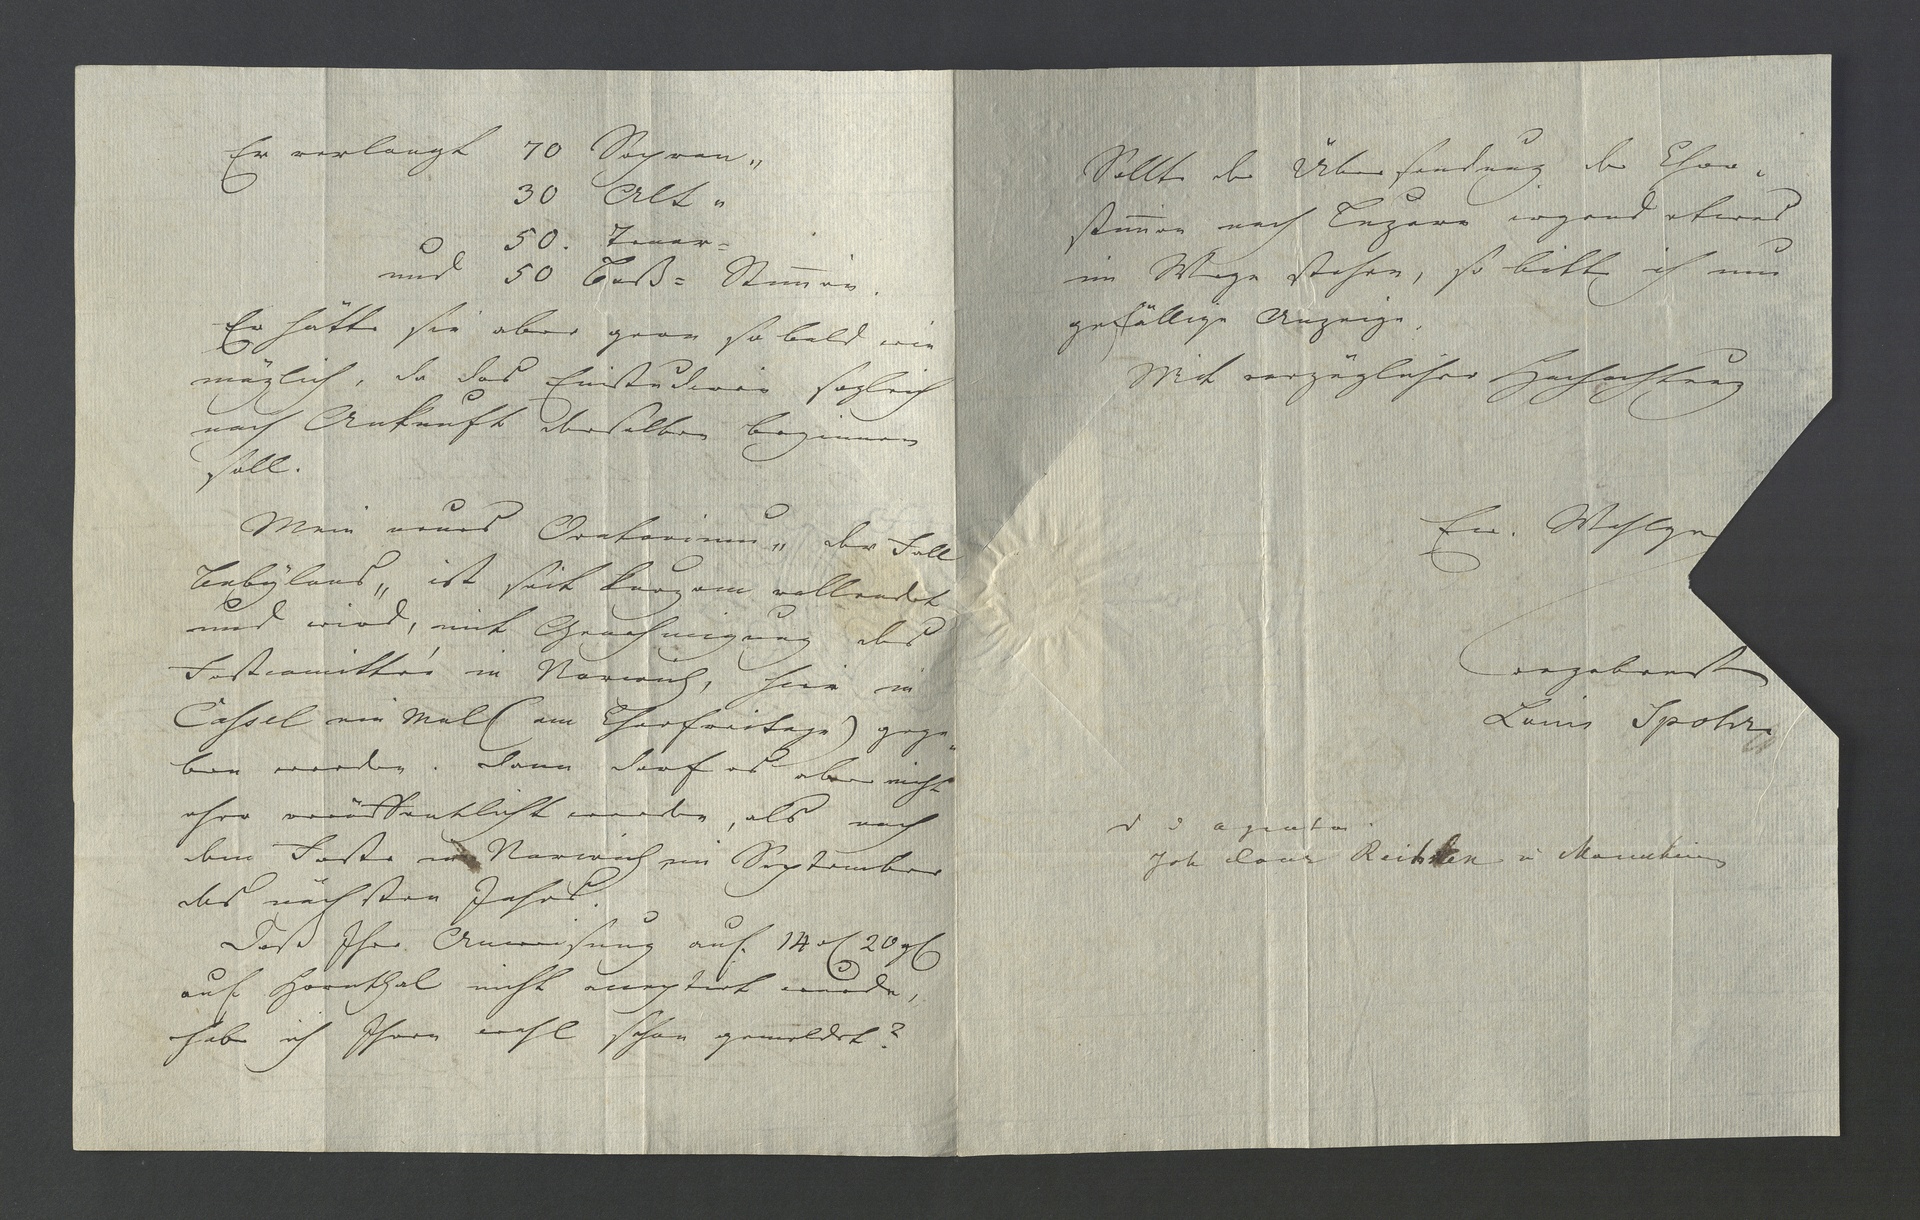 Er verlangt 70 Sopran „
30 Alt „
50. Tenor=
und 50 Baß= Stimmen.
Er hätte sie aber gern so bald wie
möglich, da das Einstudieren sogleich
nach Ankunft derselben beginnen
soll.
Mein neues Oratorium „ der Fall
Babylons „ ist seit kurzem vollendet
und wird, mit Genehmigung des
Festcomitté's in Norwich, hier in
Cassel ein Mal (am Charfreitage) gege„
ben werden. Dann darf es aber nicht
eher veröffentlicht werden, als nach
dem Feste in Norwich im September
des nächsten Jahrs.
Daß Ihre Anweisung auf 14 rh 20 gh
auf Hornthal nicht acceptirt wurde,
habe ich Ihnen wohl schon gemeldet?
Sollte der Übersendung der Chor„
stimmen nach Luzern irgend etwas
im Wege stehen, so bitte ich um
gefällige Anzeige.
Mit vorzüglicher Hochachtung
Ew. Wohlge
ergebenst
Louis Spohr
Joh in Mannheim